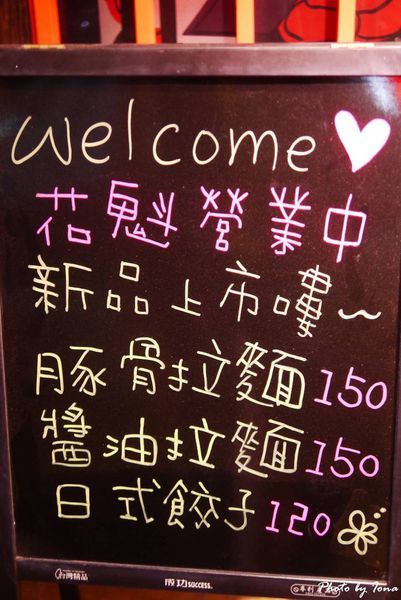 welcome
花魁營業中
新品上市嘍~
豚骨拉麵150
醬油拉麵150
日式餃子120
台灣精品
成功 SUCCESS.
Photo by Iona